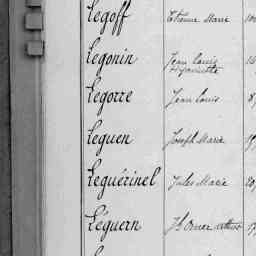 Legoff Etienne Marie
Legonin Jean Louis
Hyacinthe
Legorre Jean Louis
Leguen Joseph Marie
Leguérinel Jules Marie
Léguern St Omer